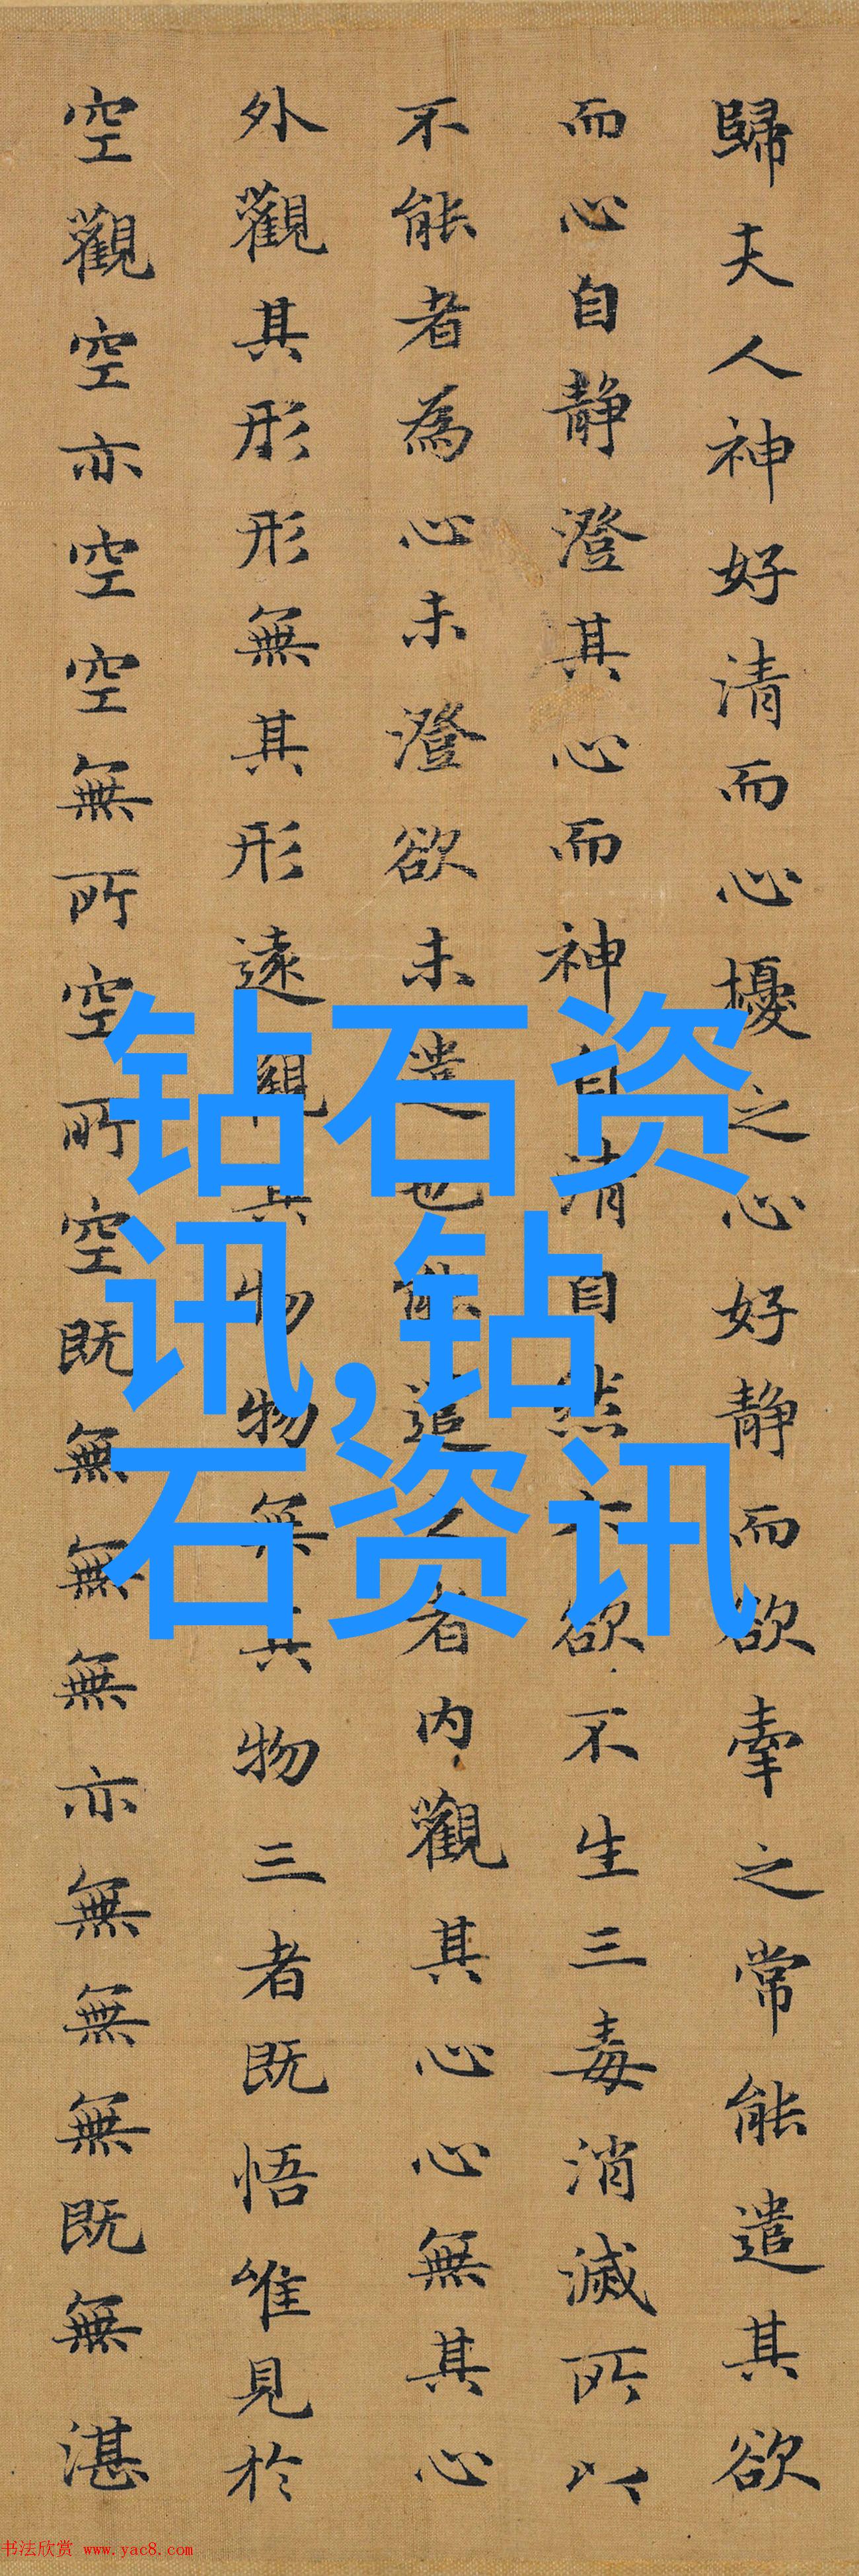 歸夫人神好清而心擾之心好静而欲牽之常能遣其欲
而心自静澄其心而神自清自然六欲不生三毒消滅所以
不能者為心未澄欲未遣也能遣之者内觀其心心無其心
外觀其形形無其形遠觀其物物無其物三者既悟唯見於
空觀空亦空空無所空所空既無無無亦無無無既無湛
钻石资
讯,钻
石资讯
书法欣赏 www.yac8.com